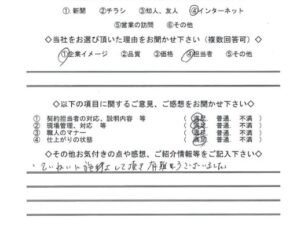 ①新聞 ②チラシ ③知人、友人 ④インターネット
⑤営業の訪問 ⑥その他
◇当社をお選び頂いた理由をお聞かせ下さい（複数回答可）◇
①企業イメージ ②品質 ③価格 ④担当者 ⑤その他
◇以下の項目に関するご意見、ご感想をお聞かせ下さい◇
① 契約担当者の対応、説明内容 等 （満足、普通、不満）
② 現場管理、対応 等 （満足、普通、不満）
③ 職人のマナー （満足、普通、不満）
④ 仕上がりの状態 （満足、普通、不満）
◇その他お気付きの点や感想、ご紹介情報等をご記入下さい◇
ていねいに施工して頂き有難うございました。